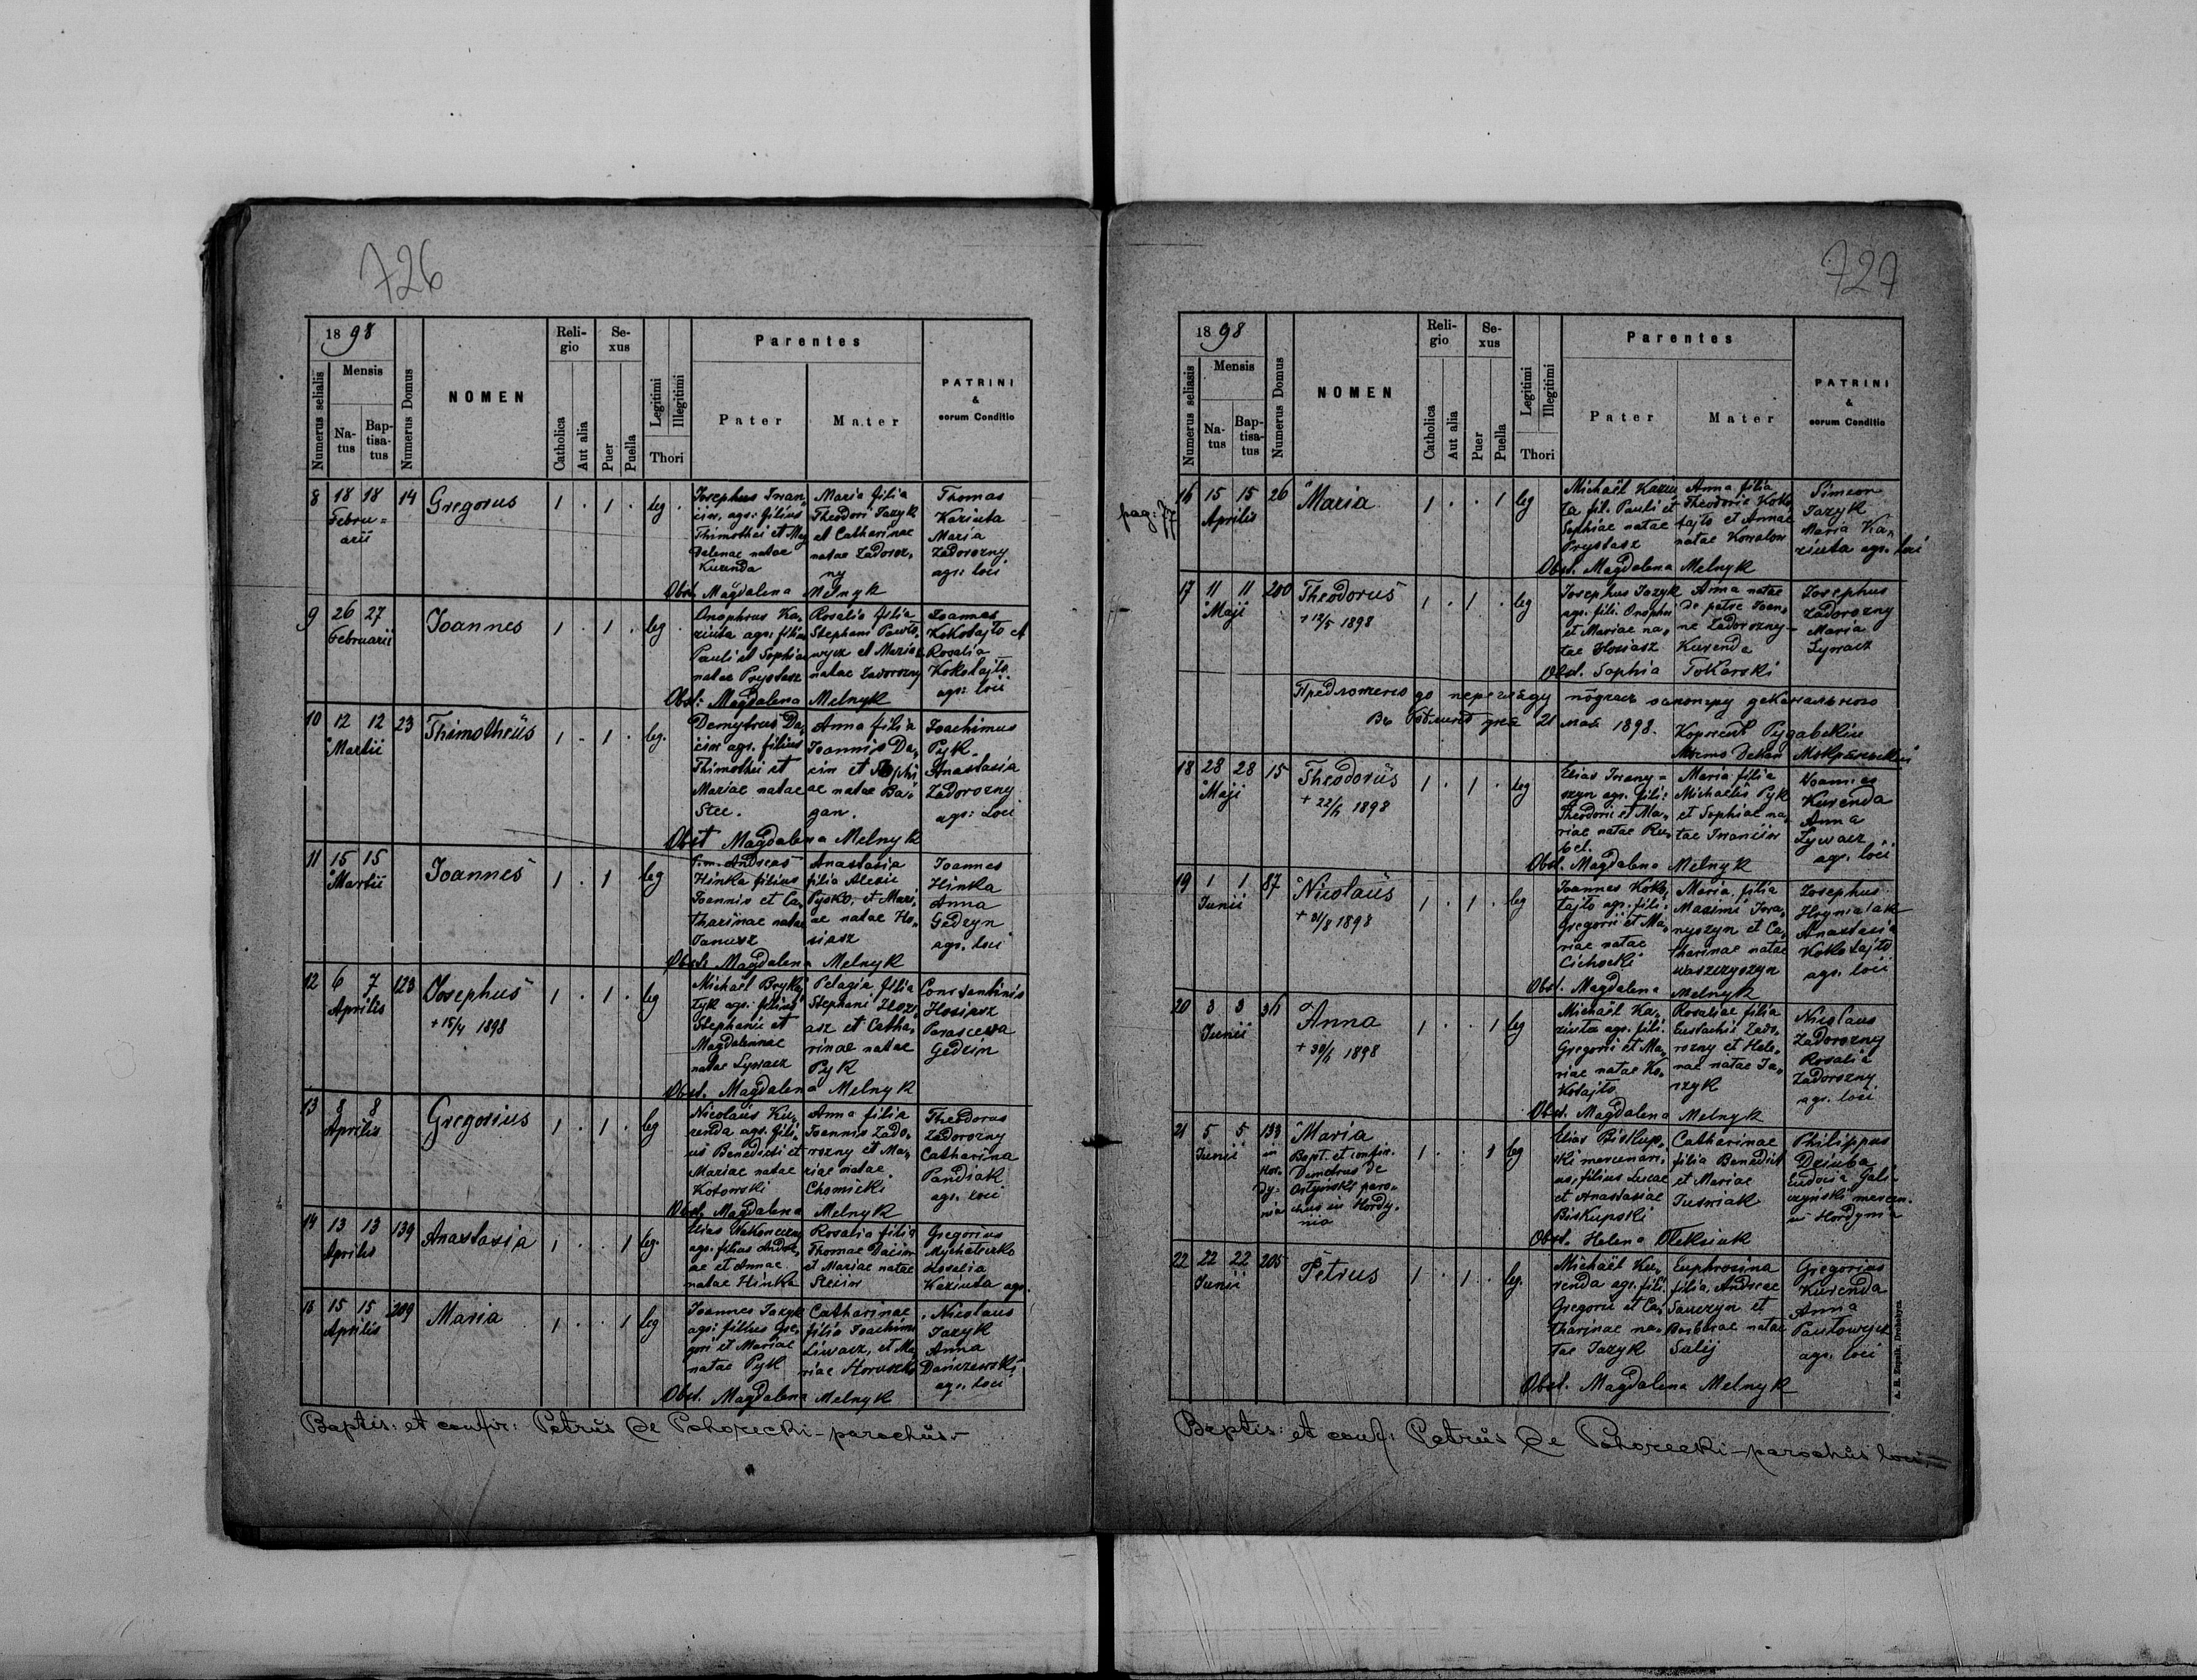 726
1898
Numerus serialis
Mensis
Natus
Baptisatus
Numerus Domus
NOMEN
Religio
Catholica
Aut alia
Sexus
Puer
Puella
Legitimi
Illegitimi
Thori
Parentes
Pater
Mater
PATRINI
&
eorum Conditio
8 18 18 14 Gregorius 1 . 1 . leg
Februarii
Josephus Iwan-
ciw, agr: filius
Thimothei et Mag
dalenae natae
Kurenda
Maria filia
Theodori Jazyk
et Catharinae
natae Zadoroz-
ny
Thomas
Kaziuta
Maria
Zadorozny
agr: loci
Obst. Magdalena Melnyk
9 26 27 Joannes 1 . 1 . leg
Februarii
Onophrus Ka-
ziuta agr: filius
Pauli et Sophiae
natae Prystasz
Rosalia filia
Stephani Pawło-
wycz et Mariae
natae Zadorozny
Joannes
Kokotajło et
Rosalia
Kokotajło
agr: loci
Obst: Magdalena Melnyk
10 12 12 23 Thimotheüs 1 . 1 . leg.
Martii
Demytrus Da-
ciw agr. filius
Thimothei et
Mariae natae
Stec.
Anna filia
Joannis Da-
ciw et Sophi
ae natae Ba-
gan.
Joachimus
Pyk
Anastasia
Zadorozny
agr: loci
Obst Magdalena Melnyk
11 15 15 Joannes 1 . 1 leg
Martii
Andreas
Hinka filius
Joannis et Ca-
tharinae natae
Janusz
Anastasia
filia Alexii
Pysko, et Mari-
ae natae Ho-
siasz
Joannes
Hinka
Anna
Gedzyn
agr. loci
Obst. Magdalena Melnyk
12 6 7 123 Josephus 1 . 1 . leg
Aprilis
+ 15/4 1898
Michaël Bryky-
tyk agr: filius
Stephani et
Magdalenae
natae Lywacz
Pelagia filia
Stephani
asz et Catha-
rinae natae
Pyk
Constantinus
Hosiasz
Parascewa
Gedzin
Obst. Magdalena Melnyk
13 8 8 Gregorius 1 . 1 . leg
Aprilis
Nicolaüs Ku-
renda agr. fili-
us Benedicti et
Mariae natae
Kotowski
Anna filia
Joannis Zado-
rozny et Ma-
riae natae
Chomicki
Theodorus
Zadorozny
Catharina
Pandiak
agr. loci
Obst. Magdalena Melnyk
14 13 13 139 Anastasia 1 . . 1 leg.
Aprilis
Elias Wakonczny
agr. filius Andre-
ae et Annae
natae Hinka
Rosalia filia
Thomae Daciw
et Mariae natae
Steciw
Gregorius
Mychalczko
Rosalia
Kaziuta agr.
15 15 15 209 Maria 1 . . 1 leg
Aprilis
Joannes Jazyk
agr: filius Gre-
gori et Mariae
natae Pyk
Catharinae
filia Joachimi
Liwacz, et Ma
riae Horuszko
Nicolaus
Jazyk
Anna
Danczewski
agr. loci
Obst. Magdalena Melnyk
Baptis: et confir: Petrus de Pohorecki - parochüs
727
1898
Numerus seliasis
Mensis
Natus
Baptisatus
Numerus Domus
NOMEN
Religio
Catholica
Aut alia
Sexus
Puer
Puella
Legitimi
Illegitimi
Thori
Parentes
Pater
Mater
PATRINI
&
eorum Conditio
pag: 77
16 15 15 26 Maria 1 . . 1 leg
Aprilis
Michaël Kaziu
ta fil. Pauli et
Sophiae natae
Prystasz
Anna filia
Theodori Koko
tajło et Annae
natae Kowalow
Simeon
Jazyk
Maria Ka-
ziuta agr. loci
Obst. Magdalena Melnyk
17 11 11 200 Theodorus 1 . 1 . leg
Maji
+ 12/5 1898
Josephus Jazyk
agr. fili. Onophri
et Mariae na-
tae Hosiasz
Anna natae
de patre Joan-
ne Zadorozny -
Kurenda
Josephus
Zadorozny
Maria
Lywacz
Obst. Sophia Tokarski
Предложено до перегляду підчас
21 мая 1898.
18 28 28 15 Theodorüs 1 . 1 . leg
Maji
+ 22/6 1898
Elias Iwany-
szyn agr. fili:
Theodori et Ma-
riae natae Ru-
bel.
Maria filia
Michaelis Pyk
et Sophiae na-
tae Iwanciw
Joannes
Kurenda
Anna
Lywacz
agr. loci
Obst. Magdalena Melnyk
19 1 1 87 Nicolaüs 1 . 1 . leg
Junii
+ 31/8 1898
Joannes Koko-
tajło agr. fili:
Gregorii et Ma-
riae natae
Cichocki
Maria filia
Maximi Iwa-
nyszyn et Ca-
tharinae natae
Waszczyszyn
Josephus
Hryniałak
Anastasia
Kokotajło
agr. loci
Obst. Magdalena Melnyk
20 3 3 36 Anna 1 . . 1 leg
Junii
+ 30/6 1898
Michaël Ka-
ziuta agr. fili.
Gregorii et Ma-
riae natae Ko-
kotajło
Rosaliae filia
Eustachii Zado-
rozny et Hele-
nae natae Ja-
rzyk
Nicolaus
Zadorozny
Rosalia
Zadorozny
agr. loci
Obst. Magdalena Melnyk
21 5 5 133 Maria 1 . . 1 leg
Junii
in Hordynia
Bapt. et confir.
Demetrus de
Ostyński paro-
chus in Hordy-
nia
Elias Biskup-
ski mercenari-
us, filius Lucae
et Anastasiae
Biskupski
Catharinae
filia Benedict
et Mariae
Jusniak
Philippus
Dziuba
Eudocia Gali-
czyński mercen.
in Hordynia
Obst. Helena Oleksiuk
22 22 22 205 Petrus 1 . 1 . leg.
Junii
Michaël Ku-
renda agr. fili.
Gregorii et Ca-
tharinae na-
tae Jazyk
Euphrosina
filia Andreae
Sawczyn et
Barbarae natae
Salij
Gregorius
Kurenda
Anna
Pawłowycz
agr. loci
Obst. Magdalena Melnyk
Baptis: et conf: Petrüs de Pohorecki - parochüs loci
A. H. Zupnik, Drohobycz.